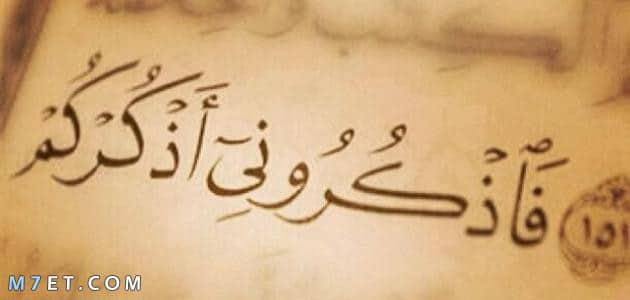 الكتب
١٥١ فَٱذۡكُرُونِيٓ أَذۡكُرۡكُمۡ
M7ET.COM